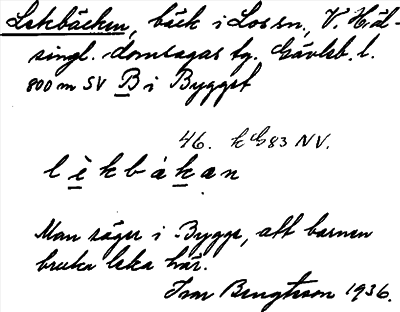 Lekbäcken, bäck i Los sn., V. Häl-
singl. domsagas tg. Gävleb. l.
800 m SV B i Bygget
46. h G83 NV.
l è k b á k a n
Man säger i Bygge, att barnen
bruka leka här.
Ivar Bengtsson 1936.